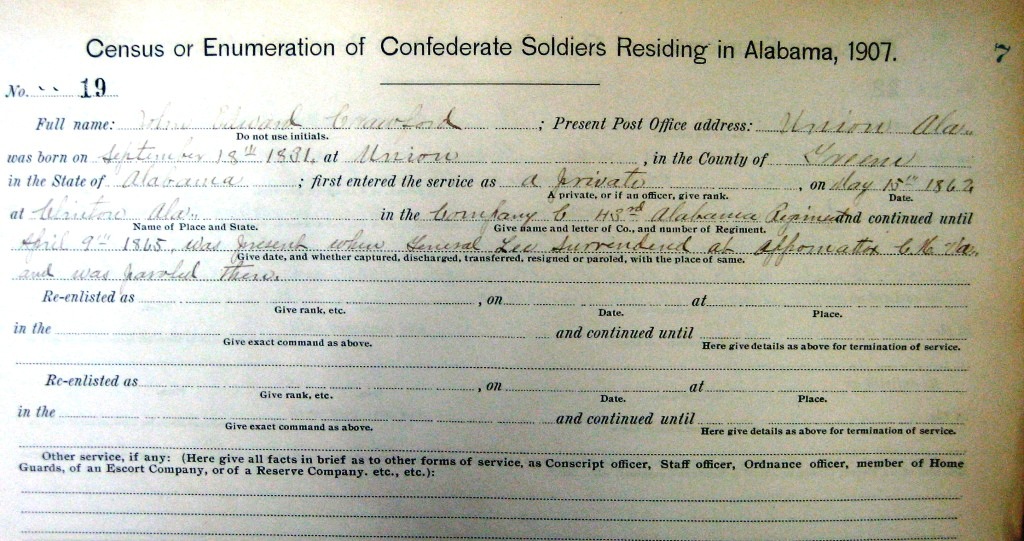 Census or Enumeration of Confederate Soldiers Residing in Alabama, 1907.
7
No. 19
Full name: John Edward Crawford ; Present Post Office address: Union Ala.
Do not use initials.
was born on September 18th 1831, at Union , in the County of Greene
in the State of Alabama ; first entered the service as a private , on May 15th 1862
A private, or if an officer, give rank. Date.
at Clinton Ala. in the Company C 43rd Alabama Regiment and continued until
Name of Place and State. Give name and letter of Co., and number of Regiment.
April 9th 1865, was present when General Lee Surrendered at Appomattox C. H. Va.
Give date, and whether captured, discharged, transferred, resigned or paroled, with the place of same.
and was paroled there.
Re-enlisted as , on at
Give rank, etc. Date. Place.
in the and continued until
Give exact command as above. Here give details as above for termination of service.
Re-enlisted as , on at
Give rank, etc. Date. Place.
in the and continued until
Give exact command as above. Here give details as above for termination of service.
Other service, if any: (Here give all facts in brief as to other forms of service, as Conscript officer, Staff officer, Ordnance officer, member of Home
Guards, of an Escort Company, or of a Reserve Company. etc., etc.):